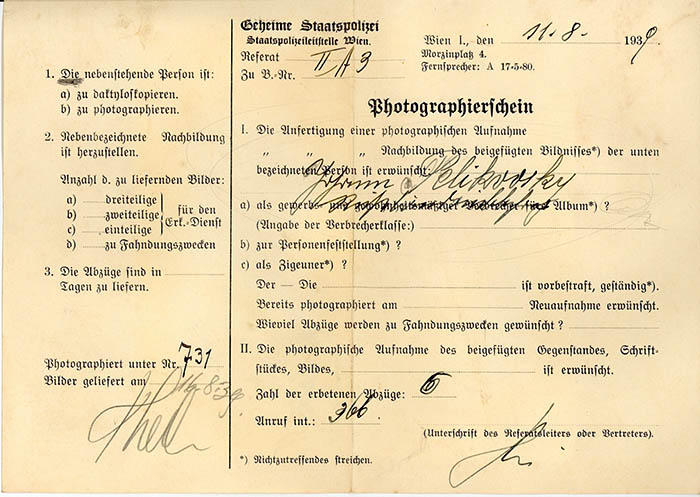 1. Die nebenstehende Person ist:
a) zu daktyloskopieren.
b) zu photographieren.
2. Nebenbezeichnete Nachbildung
ist herzustellen.
Anzahl d. zu liefernden Bilder:
a) dreiteilige
b) zweiteilige
c) einteilige
für den
Erk.-Dienst
d) zu Fahndungszwecken
3. Die Abzüge sind in
Tagen zu liefern.
Photographiert unter Nr. 731
Bilder geliefert am 8.39
Geheime Staatspolizei
Staatspolizeileitstelle Wien.
Referat II A 3
Zu B.-Nr.
Wien I., den 11.8. 1939
Morzinplatz 4.
Fernsprecher: A 17-5-80.
Photographierschein
I. Die Anfertigung einer photographischen Aufnahme
„ „ „ Nachbildung des beigefügten Bildnisses*) der unten
bezeichneten Person ist erwünscht:
Johann
a) als gewerbs- und gewohnheitsmäßiger Verbrecher fürs Album*) ?
(Angabe der Verbrecherklasse:)
b) zur Personenfeststellung*) ?
c) als Zigeuner*) ?
Der — Die ist vorbestraft, geständig*).
Bereits photographiert am Neuaufnahme erwünscht.
Wieviel Abzüge werden zu Fahndungszwecken gewünscht ?
II. Die photographische Aufnahme des beigefügten Gegenstandes, Schrift-
stückes, Bildes, ist erwünscht.
Zahl der erbetenen Abzüge: 6
Anruf int.: 366
(Unterschrift des Referatsleiters oder Vertreters).
*) Nichtzutreffendes streichen.